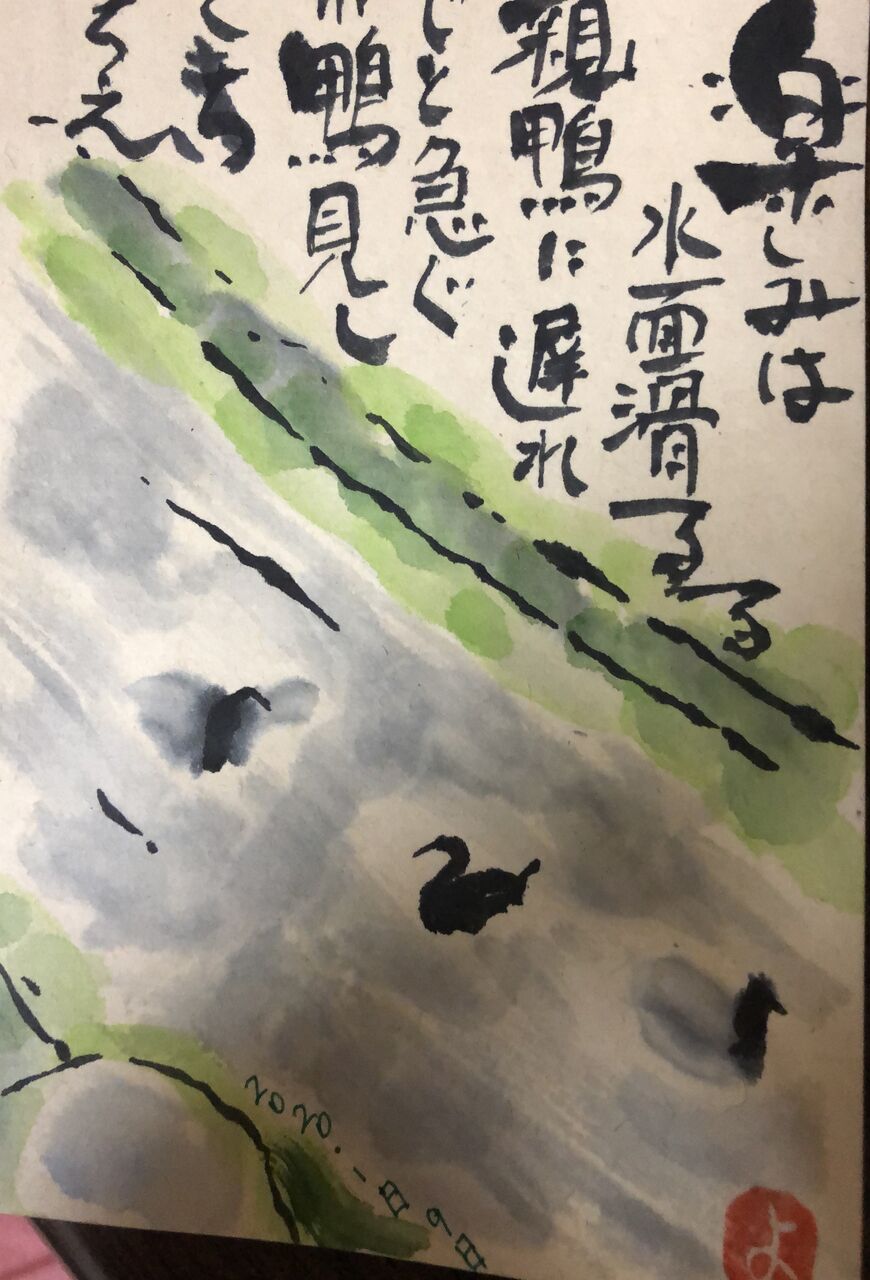 楽しみは
水面滑るる
親鴨に遅れ
じと急ぐ
鴨見し
とき
2020.1月9日
よ